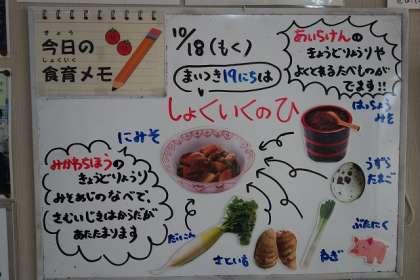 きょう
今日の
しょくいく
食育メモ
10/18(もく)
まいつき19にちは
しょくいくのひ
あいちけんの
きょうどりょうりや
よくとれるたべものが
でます!!
はっちょう
みそ
にみそ
みかわちほうの
きょうどりょうり
みそあじのなべで、
さむいじきはからだが
あたたまります
うずら
たまご
だいこん
さといも
ねぎ
ぶたにく